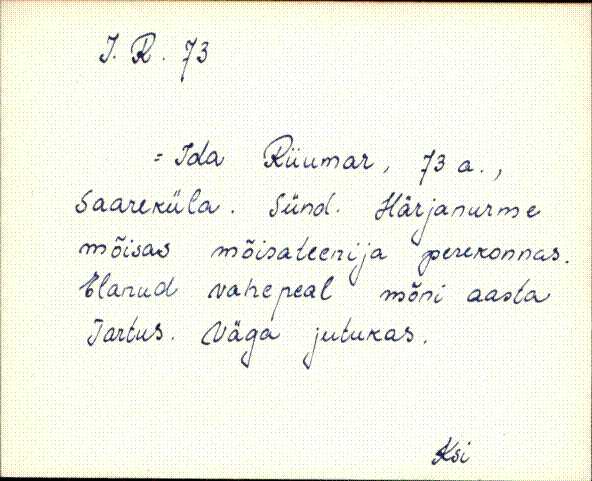 I. R. 73
= Ida Rüumar, 73 a.,
Saareküla. Sünd. Härjanurme
mõisas mõisateenija perekonnas.
Elanud vahepeal mõni aasta
Tartus. Väga jutukas.
Ksi